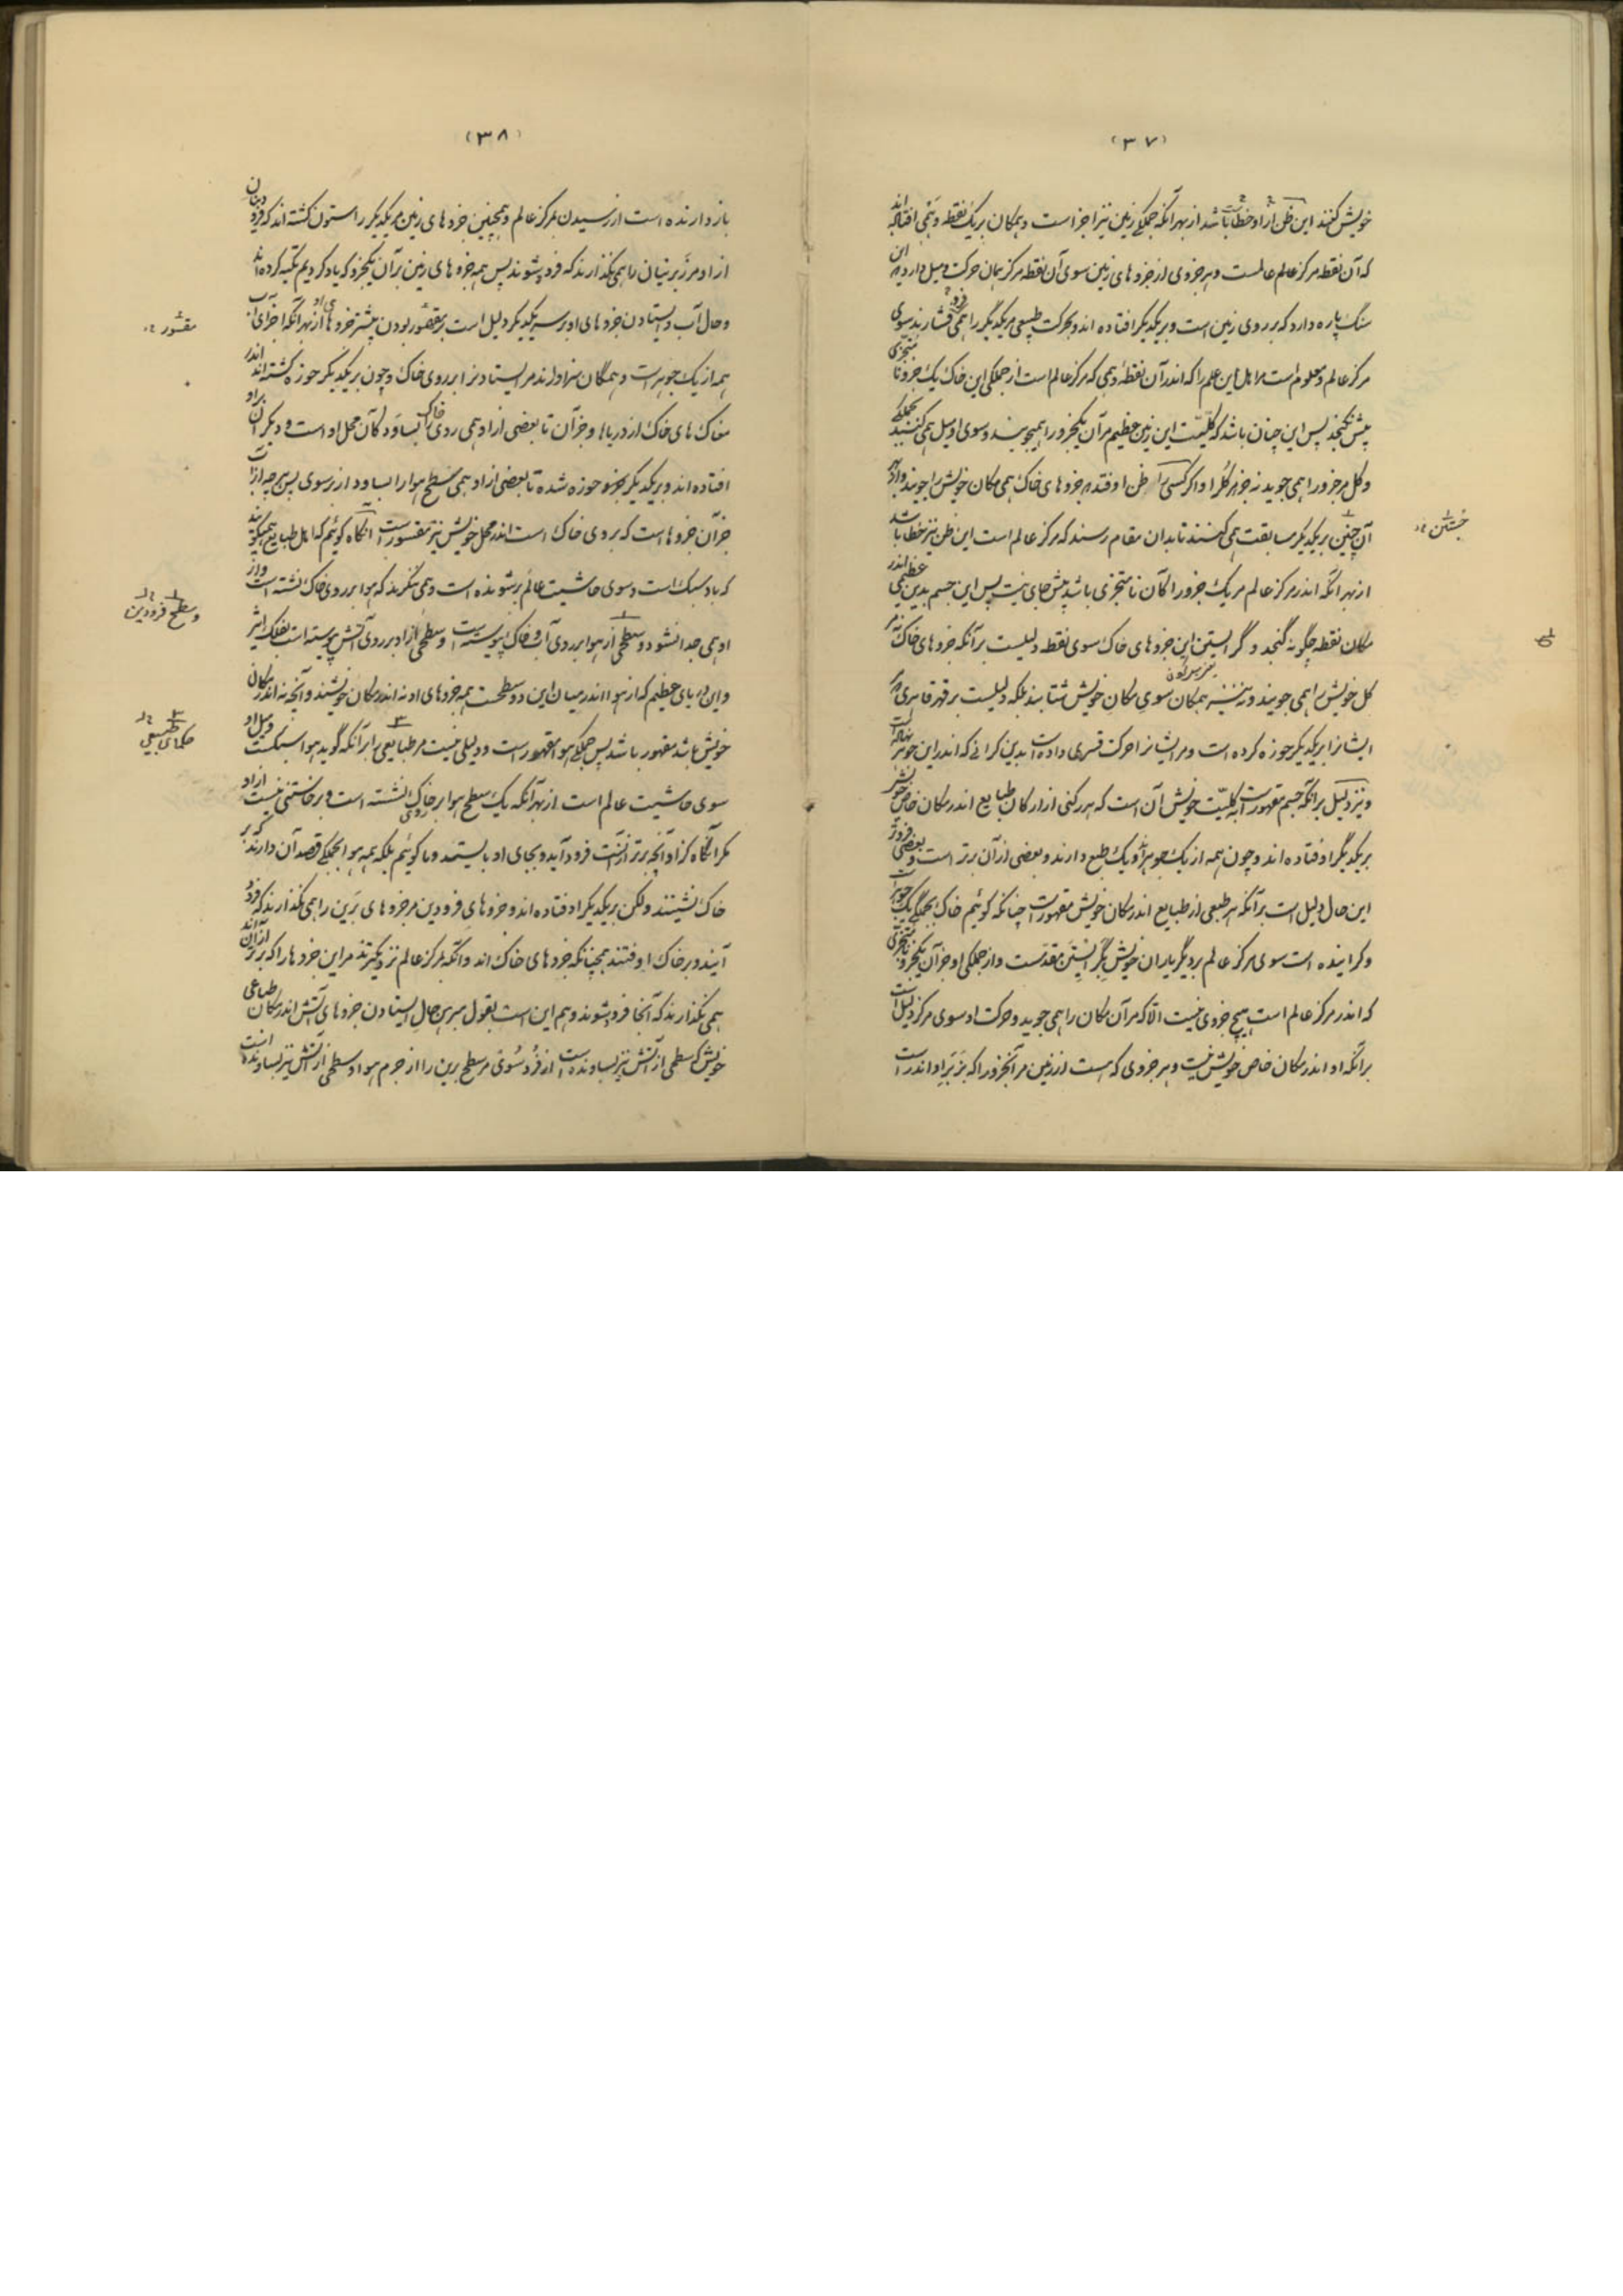 (۳۷)
خویش کنند این ظن از او خطا باشد از بهر آنکه جملگی زمین نیز اجزا است و همگان بر یک نقطه وهمی افتاده‌اند
که آن نقطه مرکز عالم است و هر جزوی از جزوهای زمین سوی آن نقطه مرکز همان حرکت و میل دارد که این
سنگ پاره دارد که بر روی زمین است و بر یکدیگر افتاده اند و بحرکت طبیعی مر یکدیگر را همی فشارند سوی
مرکز عالم و معلوم است مر اهل این علم را که اندر آن نقطهٔ وهمی که مرکز عالم است از جملگی این خاک یک جزو نامتجزی
بیش نگنجد پس این چنان باشد که کلیّت این زمین عظیم مر آن یکجزو را همیجوید و سوی او میل همی کند بجملگی
و کل مر جزو را همی جوید نه جزو مر کل را و اگر کسی را ظن اوفتد که جزوهای خاک همی مکان خویش را جویند و از بهر
آن چنین بر یکدیگر مسابقت همی کنند تا بدان مقام رسند که مرکز عالم است این ظن نیز خطا باشد
از بهر آنکه اندر مرکز عالم مر یک جزو را کآن نامتجزی باشد بیش جای نیست پس این جسم بدین عظیمی اندر
مکان نقطه چگونه گنجد و گرایستن این جزوهای خاک سوی نقطه دلیلست بر آنکه جزوهای خاک نه مر
کل خویش را همی جویند و نه نیز همگان سوی مکان خویش شتابند بلکه دلیلست بر قهر قاهری مر
ایشانرا بر یکدیگر حوزه کرده است و مر ایشانرا حرکت قسری داده است بدین گرانی که اندر این جوهر نهاده است
و نیز دلیل بر آنکه جسم مقهور است بکلیّت خویش آن است که هر رکنی از ارکان طبایع اندر مکان خاص خویش
بر یکدیگر اوفتاده اند و چون همه از یک جوهراند و یک طبع دارند و بعضی از آن برتر است و بعضی فروتر
این حال دلیل است بر آنکه هر طبعی از طبایع اندر مکان خویش مقهور است چنانکه گوئیم خاک بجملگی یک جوهر است
و گراینده است سوی مرکز عالم بر دیگر یاران خویش بگرایستن مقدّمست و از جملگی او جز آن یکجزو نامتجزی
که اندر مرکز عالم است هیچ جزوی نیست الّا که مر آن مکان را همی جوید و حرکت او سوی مرکز دلیل است
بر آنکه او اندر مکان خاص خویش نیست و هر جزوی که هست از زمین مر آنجزو را که بزبر او اندر است
جستن
(۳۸)
باز دارنده است از رسیدن بمرکز عالم و همچنین جزوهای زمین مر یکدیگر را ستون گشته اند که فرودینان
از او مر زبرینیان را همی نگذارند که فرو شوند پس همه جزوهای زمین بر آن یکجزو که یاد کردیم تکیه کرده اند
و حال آب و ایستادن جزوهای او بر سر یکدیگر دلیل است بر مقهور بودن بیشتر جزوهای او از بهر آنکه اجزای آب
همه از یک جوهر است و همگان سزاوارند مر ایستادن را بر روی خاک و چون بر یکدیگر حوزه گشته اند اندر
مغاک های خاک از دریاها و جز آن تا بعضی از او همی روی خاک را بساود کآن محل او است و دیگران بر او
افتاده اند و بر یکدیگر حوزه شده تا بعضی از او همی سطح هوا را بساود از زبر سوی پس هرچه از آب
جز آن جزوها است که بر روی خاک است اندر محل خویش نیز مقسور است آنگاه گوئیم که اهل طبایع همیگویند
که باد سبک است و سوی حاشیت عالم بر شونده است و همی ننگرند که هوا بر روی خاک نشسته است و از
او همی جدا نشود و سطحی از هوا بر روی آب و خاک پیوسته است و سطحی از او بر روی آتش پیوسته است بفلک اثیر
و این دریای عظیم که از هوا اندر میان این دو سطحست همه جزوهای او نه اندر مکان خویشند و آنچه نه اندر مکان
خویش باشد مقهور باشد پس جملگی هوا مقهور است و دلیلی نیست مر طبایعی را بر آنکه گوید هوا سبکست و میل او
سوی حاشیت عالم است از بهر آنکه یک سطح هوا بر روی خاک نشسته است و برخاستنی نیست از او
مگر آنگاه کز او آنچه برتر از آنست فرود آید و بجای او بایستد و ما گوئیم بلکه همه هوا بجملگی قصد آن دارند که بر
خاک نشینند ولکن بر یکدیگر اوفتاده اند و جزوهای فرودین مر جزوهای برین را همی نگذارند که فرود
آیند و بر خاک اوفتند همچنانکه جزوهای خاک اند و آنکه بمرکز عالم نزدیکترند مر این جزوها را که برتر از آن اند
همی نگذارند که آنجا فرو شوند و هم این است بقول مبرهن حال ایستادن جزوهای آتش اندر مکان طباعی
خویش که سطحی از آتش نیز بساونده است از فرود سوی مر سطح برین را از جرم هوا و سطحی از آتش نیز بساونده است
مقسور
و سطح فرودین
حکمای طبیعی